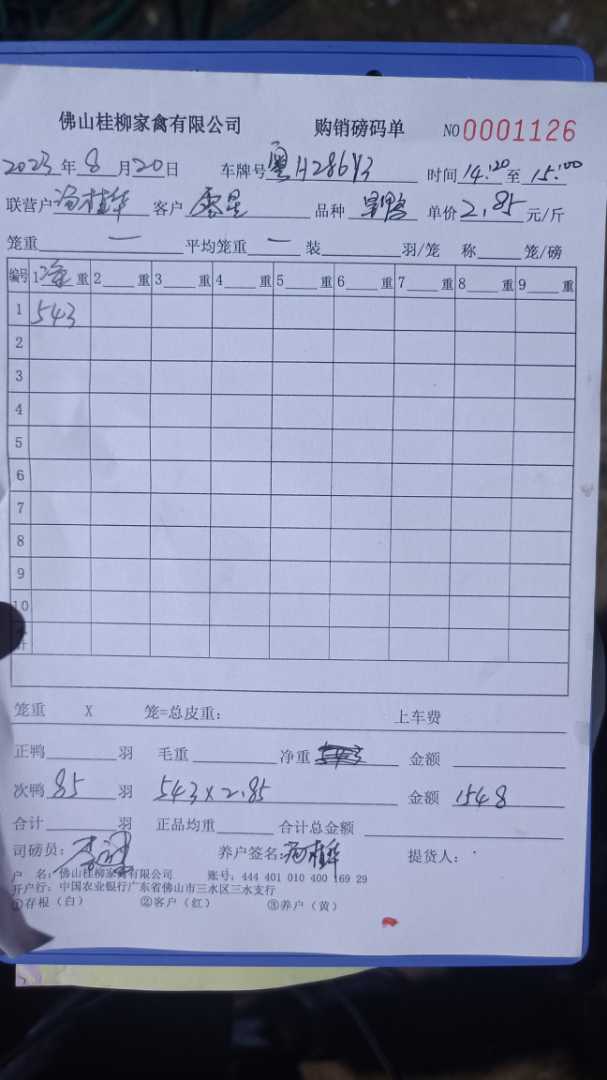 佛山桂柳家禽有限公司 购销磅码单 NO 0001126
2023年8月20日 车牌号粤H286Y3 时间14:20至15:00
联营户冯植华 客户零星 品种 单价2.85元/斤
笼重 一 平均笼重 一 装 羽/笼 称 笼/磅
编号 1净重 2 重 3 重 4 重 5 重 6 重 7 重 8 重 9 重
1 543
2
3
4
5
6
7
8
9
10
计
笼重 X 笼=总皮重: 上车费
正鸭 羽 毛重 净重 金额
次鸭85羽 543×2.85 金额 1548
合计 羽 正品均重 合计总金额
司磅员: 养户签名:冯植华 提货人:
户 名:佛山桂柳家禽有限公司 账号:444 401 010 400 169 29
开户行:中国农业银行广东省佛山市三水区三水支行
①存根(白) ②客户(红) ③养户(黄)